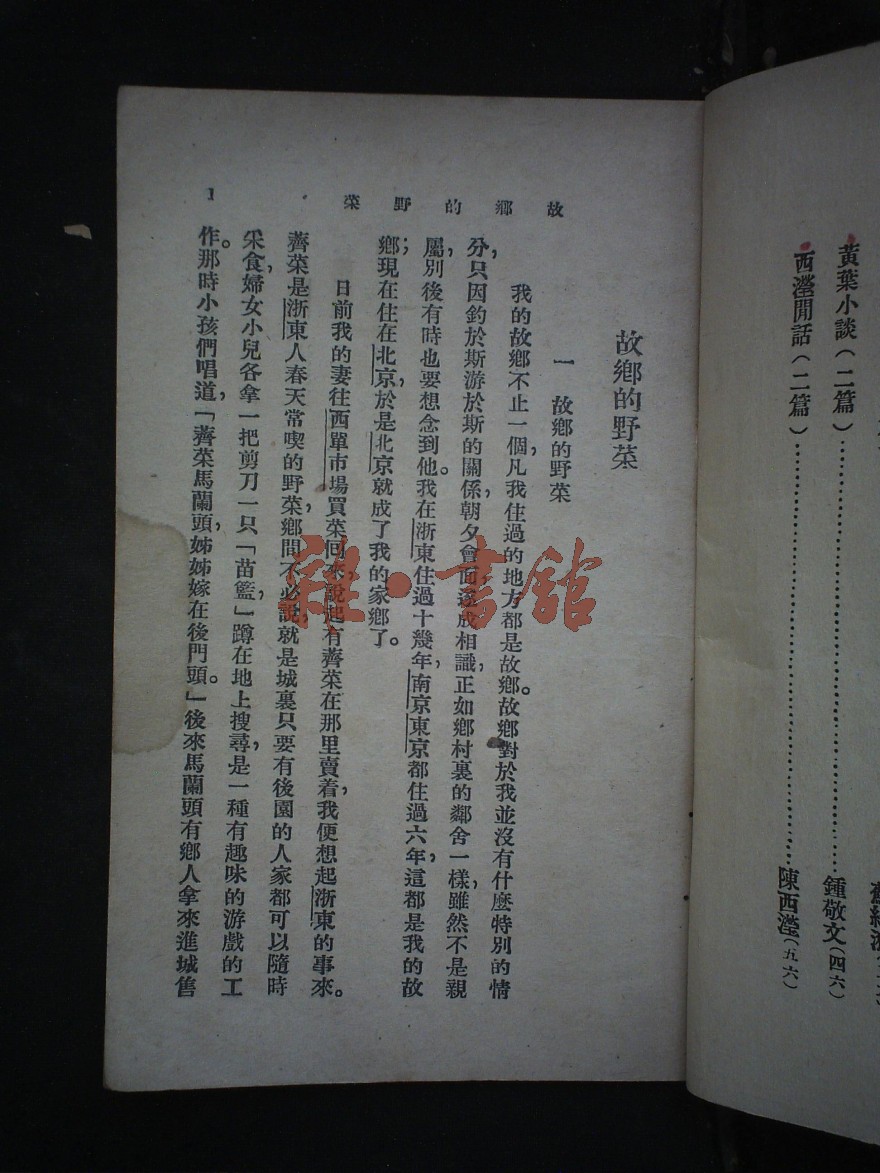 黃葉小談(二篇)………………鍾敬文(四六)
西瀅閒話(二篇)………………陳西瀅(五六)
故鄉的野菜
1
故鄉的野菜
一　故鄉的野菜
我的故鄉不止一個，凡我住過的地方都是故鄉。故鄉對於我並沒有什麼特別的情
分，只因釣於斯游於斯的關係，朝夕會面，遂成相識，正如鄉村裏的鄰舍一樣，雖然不是親
屬，別後有時也要想念到他。我在浙東住過十幾年，南京東京都住過六年，這都是我的故
鄉；現在住在北京，於是北京就成了我的家鄉了。
日前我的妻往西單市場買菜回來，說起有薺菜在那里賣着，我便想起浙東的事來。
薺菜是浙東人春天常喫的野菜，鄉間不必說，就是城裏只要有後園的人家都可以隨時
采食，婦女小兒各拿一把剪刀一只「苗籃」，蹲在地上搜尋，是一種有趣味的游戲的工
作。那時小孩們唱道，「薺菜馬蘭頭，姊姊嫁在後門頭。」後來馬蘭頭有鄉人拿來進城售
雜·書館